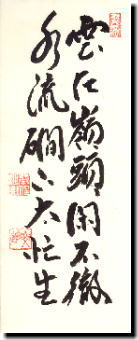 雲在嶺頭閑不徹
水流磵下太忙生